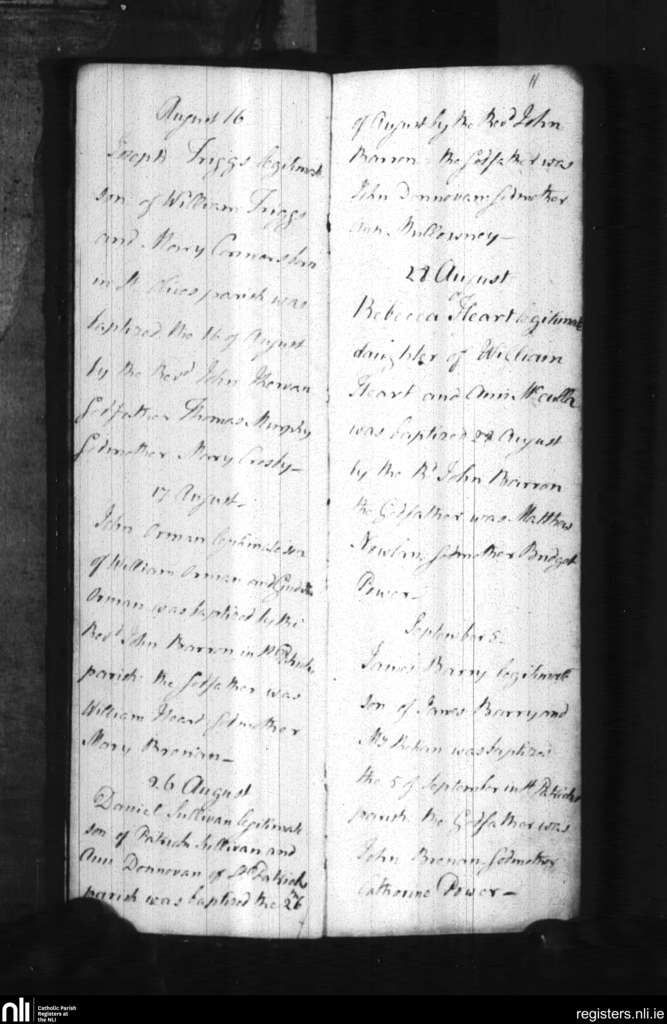 August 16
Joseph Triggs legitimate
son of William Triggs
and Mary Connors born
in St parish was
baptized the 16 of August
by the Revd John
Godfather Thomas Murphy
Godmother Mary Crosby —
17 August.
John Orman legitimate son
of William Orman and
Orman was baptized by the
Revd John Barron in St Patricks
parish. the Godfather was
William Heart Godmother
Mary Brenan —
26 August
Daniel Sullivan legitimate
son of Patrick Sullivan and
Ann Donnovan of St Patricks
parish was baptized the 26
11
of August by the Revd John
Barron. the Godfather was
John Donnovan Godmother
Ann Mullowney —
28 August
Rebecca Heart legitimate
daughter of William
Heart and Ann
was baptized 28 August
by the Rd John Barron
the Godfather was Matthew
Newlan, Godmother Bridget
Power —
September 5
James Barry legitimate
son of James Barry and
was baptized
the 5 of September in St Patricks
parish. the Godfather was
John Brenan Godmother
Catharine Power —
nli Catholic Parish
Registers at
the NLI
registers.nli.ie